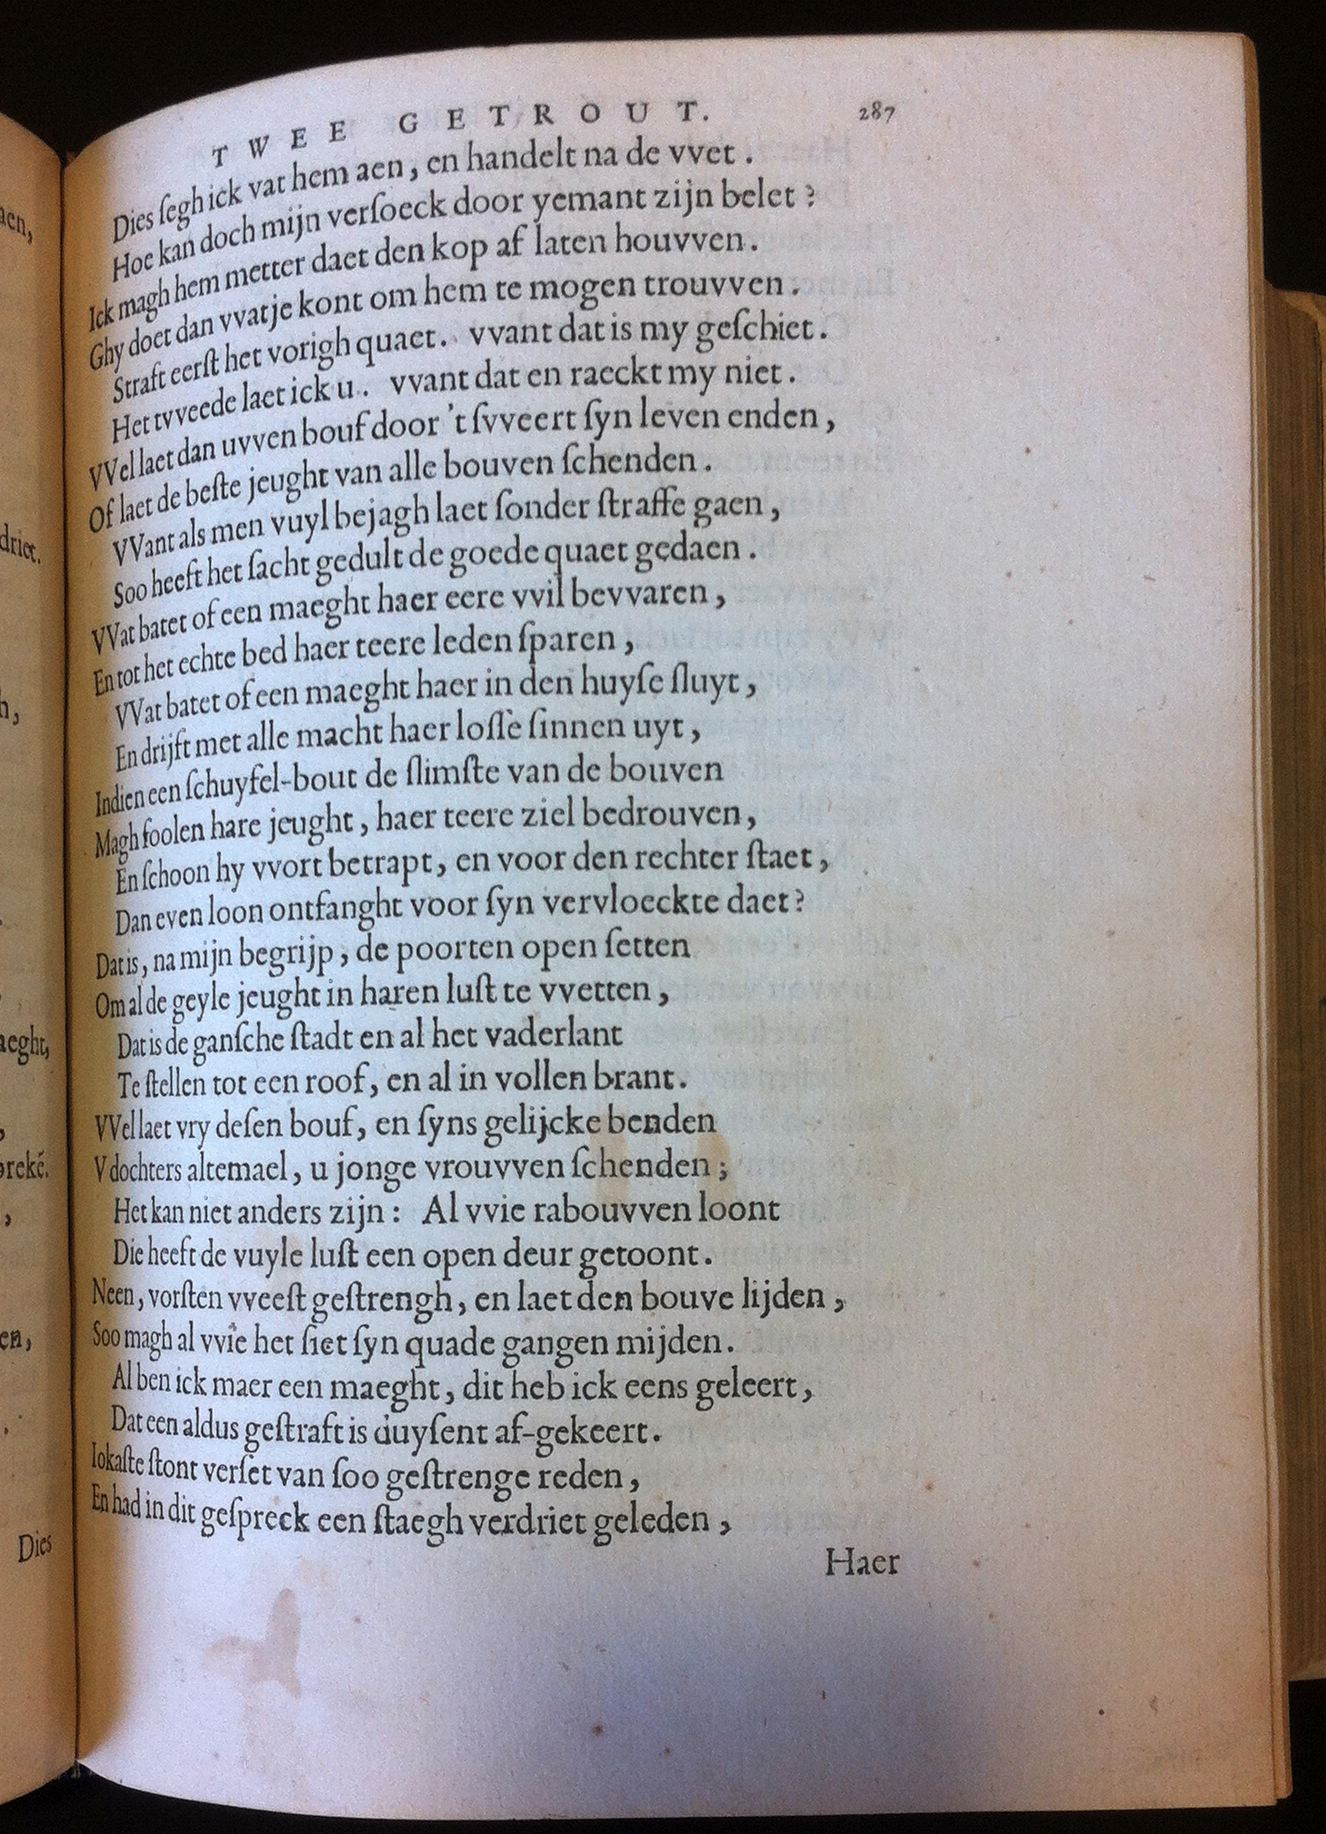 TWEE GETROUT. 287
Dies ſegh ick vat hem aen, en handelt na de vvet.
Hoe kan doch mijn verſoeck door yemant zijn belet?
Ick magh hem metter daet den kop af laten houvven.
Ghy doet dan vvatje kont om hem te mogen trouvven.
Straft eerſt het vorigh quaet. vvant dat is my geſchiet.
Het tvveede laet ick u. vvant dat en raeckt my niet.
VVel laet dan uvven bouf door 't ſvveert ſyn leven enden,
Of laet de beſte jeught van alle bouven ſchenden.
VVant als men vuyl bejagh laet ſonder ſtraffe gaen,
Soo heeft het ſacht gedult de goede quaet gedaen.
VVat batet of een maeght haer eere vvil bevvaren,
En tot het echte bed haer teere leden ſparen,
VVat batet of een maeght haer in den huyſe ſluyt,
En drijft met alle macht haer loſſe ſinnen uyt,
Indien een ſchuyfel-bout de ſlimſte van de bouven
Magh ſoolen hare jeught, haer teere ziel bedrouven,
En ſchoon hy vvort betrapt, en voor den rechter ſtaet,
Dan even loon ontfanght voor ſyn vervloeckte daet?
Dat is, na mijn begrijp, de poorten open ſetten
Om al de geyle jeught in haren luſt te vvetten,
Dat is de ganſche ſtadt en al het vaderlant
Te ſtellen tot een roof, en al in vollen brant.
VVel laet vry deſen bouf, en ſyns gelijcke benden
V dochters altemael, u jonge vrouvven ſchenden;
Het kan niet anders zijn: Al vvie rabouvven loont
Die heeft de vuyle luſt een open deur getoont.
Neen, vorſten vveeſt geſtrengh, en laet den bouve lijden,
Soo magh al vvie het ſiet ſyn quade gangen mijden.
Al ben ick maer een maeght, dit heb ick eens geleert,
Dat een aldus geſtraft is duyſent af-gekeert.
Iokaſte ſtont verſet van ſoo geſtrenge reden,
En had in dit geſpreck een ſtaegh verdriet geleden,
Haer
aen,
driet.
h,
aeght,
,
breké.
,
en,
.
Dies